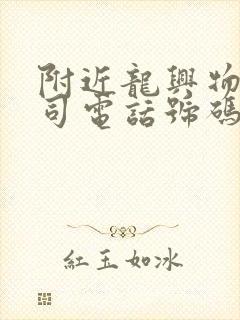 附近龍興物
司電話號碼
紅玉如冰